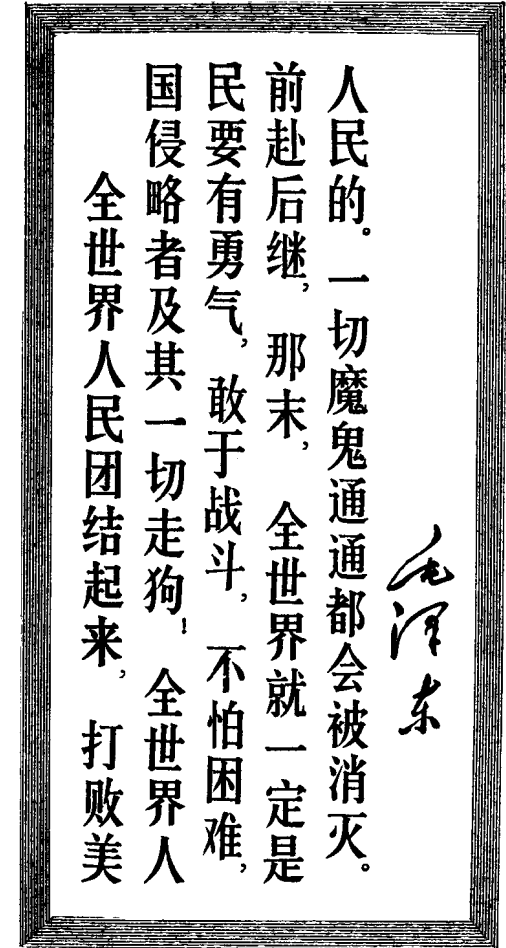 全世界人民团结起来，打败美
国侵略者及其一切走狗！全世界人
民要有勇气，敢于战斗，不怕困难，
前赴后继，那末，全世界就一定是
人民的。一切魔鬼通通都会被消灭。
毛泽东